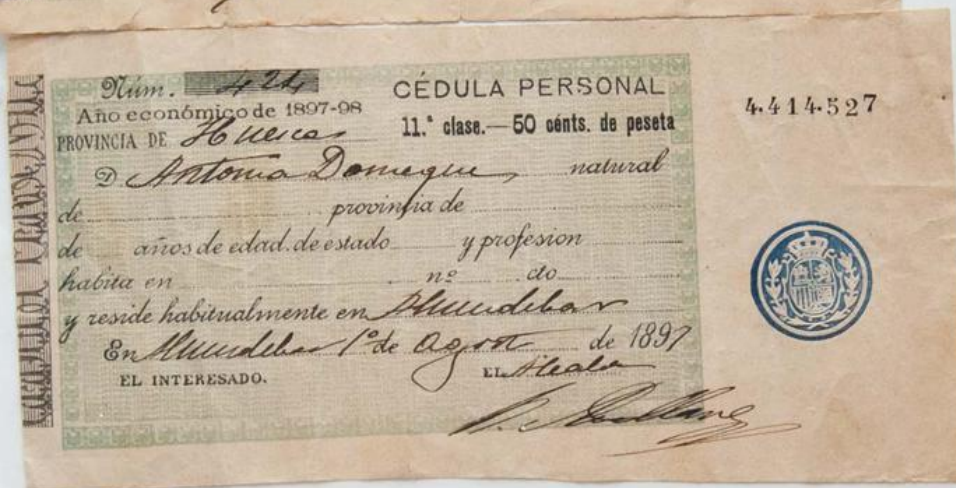 Núm. 424
CÉDULA PERSONAL
Año económico de 1897-98
11.ª clase.—50 cénts. de peseta
PROVINCIA DE Huesca
4.414.527
D Antonia Domeque, natural
de provincia de
de años de edad. de estado y profesion
habita en nº cto
y reside habitualmente en Almudebar
En Almudebar 1º de Agosto de 1897
EL INTERESADO.
EL Alcalde